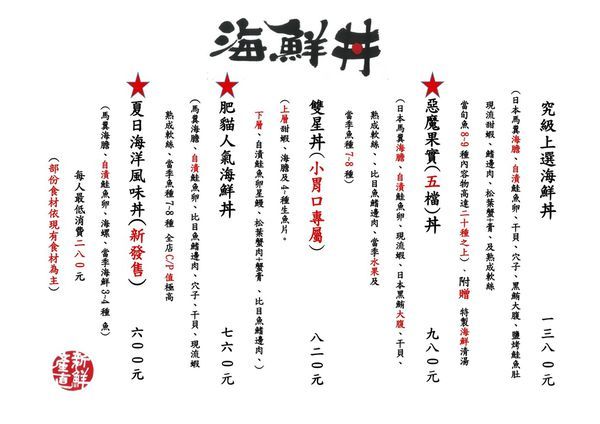 海鮮丼
究級上選海鮮丼 一三八０元
(日本馬翼海膽、自漬鮭魚卵、干貝、穴子、黑鮪大腹、鹽烤鮭魚肚
現流甜蝦、鰭邊肉、松葉蟹+膏、及熟成軟絲
當旬魚8-9種內容物高達二十種之上)、附贈 特製海鮮清湯
★惡魔果實(五檔)丼 九八０元
(日本馬翼海膽、自漬鮭魚卵、現流蝦、日本黑鮪大腹、干貝、
熟成軟絲、、比目魚鰭邊肉、當季水果及
當季魚種7-8種)
雙星丼(小胃口專屬) 八二０元
(上層甜蝦、海膽及4-種生魚片。
下層、自漬鮭魚卵星鰻、松葉蟹肉+蟹膏、比目魚鰭邊肉、)
★肥貓人氣海鮮丼 七六０元
(馬翼海膽、自漬鮭魚卵、比目魚鰭邊肉、、穴子、干貝、現流蝦
熟成軟絲、當季魚種7-8種 全店C/P值極高
★夏日海洋風味丼(新發售) 六００元
(馬翼海膽、自漬鮭魚卵、海螺、當季海鮮3-4種魚)
每人最低消費二八０元
(部份食材依現有食材為主)
新鮮
產直